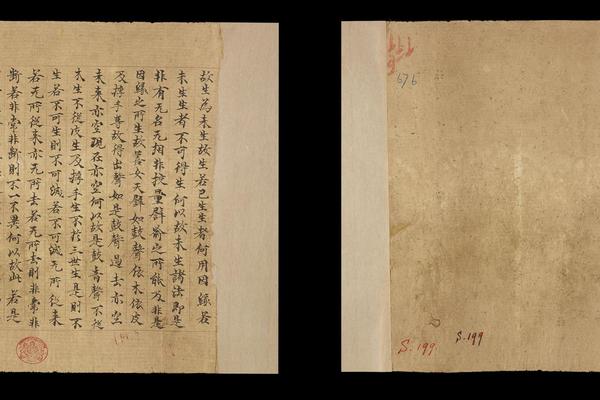 故生為未生故生若已生生者何用因緣若
未生生者不可得生何以故未生諸法即是
非有无名无相非挍量辟喻之所能及非是
因緣之所生故善女天辟如鼓聲依木依皮
及桴手等故得出聲如是鼓聲過去亦空
未來亦空現在亦空何以故是鼓音聲不從
木生不從皮生及桴手生不於三世生是則不
生若不可生則不可滅若不可滅无所從來
若无所從來亦无所去若无所去則非常非
斷若非常非斷則不一不異何以故此若是
676
S.199.
S.199